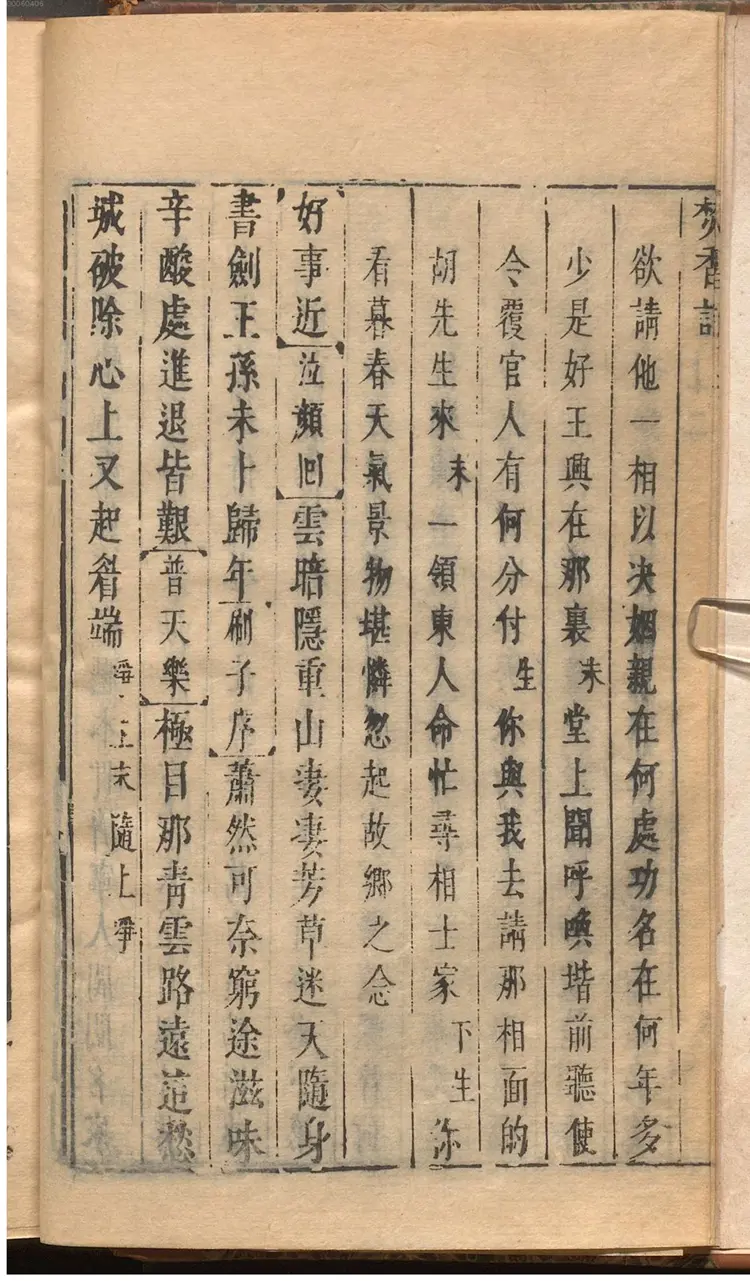 00060406
焚香記
欲請他一相以决姻親在何處功名在何年多
少是好王興在那裏末堂上聞呼喚堦前聽使
令覆官人有何分付生你與我去請那相面的
胡先生來末一領東人命忙尋相士家下生你
看暮春天氣景物堪憐忽起故鄉之念
好事近泣顏回雲暗隱重山妻妻芳草迷天隨身
書劍王孫未卜歸年刷子序蕭然可奈窮途滋味
辛酸處進退皆艱普天樂極目那青雲路遠這愁
城破除心上又起眉端淨上末隨上淨